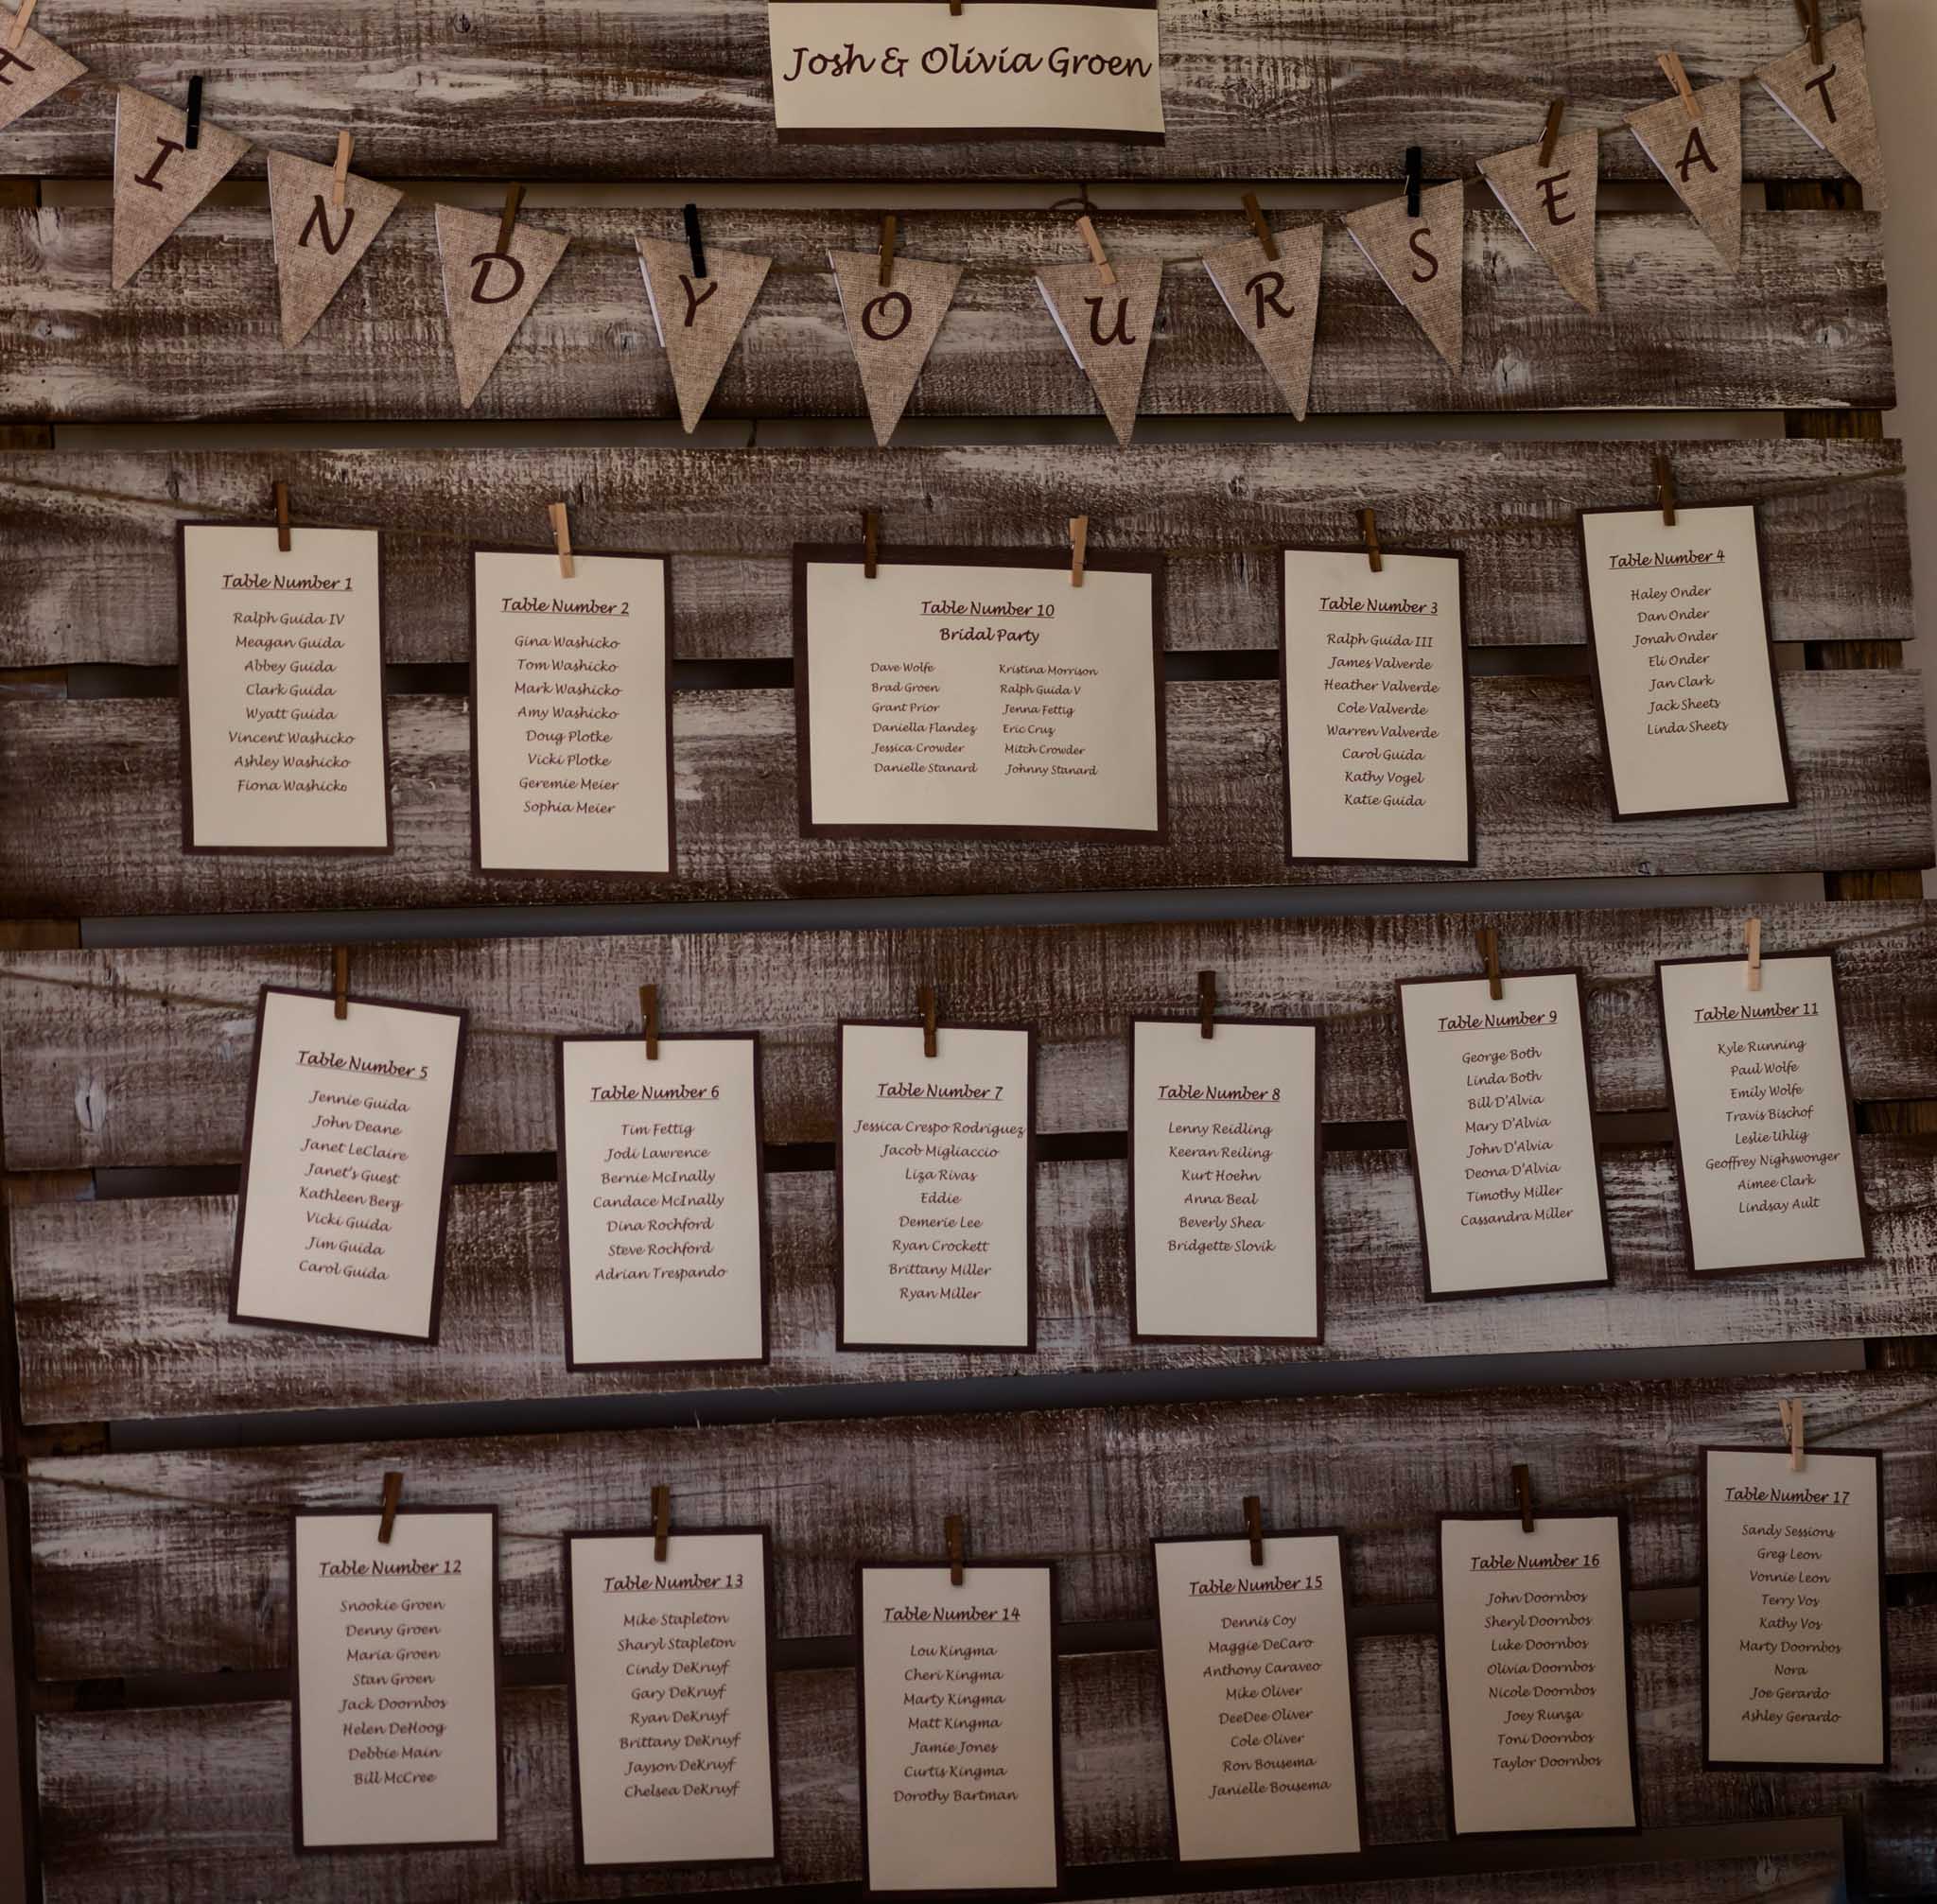 Josh & Olivia Groen
F I N D Y O U R S E A T
Table Number 1
Ralph Guida IV
Meagan Guida
Abbey Guida
Clark Guida
Wyatt Guida
Vincent Washicko
Ashley Washicko
Fiona Washicko
Table Number 2
Gina Washicko
Tom Washicko
Mark Washicko
Amy Washicko
Doug Plotke
Vicki Plotke
Geremie Meier
Sophia Meier
Table Number 10
Bridal Party
Dave Wolfe
Brad Groen
Grant Prior
Daniella Flandez
Jessica Crowder
Danielle Stanard
Kristina Morrison
Ralph Guida V
Jenna Fettig
Eric Cruz
Mitch Crowder
Johnny Stanard
Table Number 3
Ralph Guida III
James Valverde
Heather Valverde
Cole Valverde
Warren Valverde
Carol Guida
Kathy Vogel
Katie Guida
Table Number 4
Haley Onder
Dan Onder
Jonah Onder
Eli Onder
Jan Clark
Jack Sheets
Linda Sheets
Table Number 5
Jennie Guida
John Deane
Janet LeClaire
Janet's Guest
Kathleen Berg
Vicki Guida
Jim Guida
Carol Guida
Table Number 6
Tim Fettig
Jodi Lawrence
Bernie McInally
Candace McInally
Dina Rochford
Steve Rochford
Adrian Trespando
Table Number 7
Jessica Crespo Rodriguez
Jacob Migliaccio
Liza Rivas
Eddie
Demerie Lee
Ryan Crockett
Brittany Miller
Ryan Miller
Table Number 8
Lenny Reidling
Keeran Reiling
Kurt Hoehn
Anna Beal
Beverly Shea
Bridgette Slovik
Table Number 9
George Both
Linda Both
Bill D'Alvia
Mary D'Alvia
John D'Alvia
Deona D'Alvia
Timothy Miller
Cassandra Miller
Table Number 11
Kyle Running
Paul Wolfe
Emily Wolfe
Travis Bischof
Leslie Uhlig
Geoffrey Nighswonger
Aimee Clark
Lindsay Ault
Table Number 12
Snookie Groen
Denny Groen
Maria Groen
Stan Groen
Jack Doornbos
Helen DeHoog
Debbie Main
Bill McCree
Table Number 13
Mike Stapleton
Sharyl Stapleton
Cindy DeKruyf
Gary DeKruyf
Ryan DeKruyf
Brittany DeKruyf
Jayson DeKruyf
Chelsea DeKruyf
Table Number 14
Lou Kingma
Cheri Kingma
Marty Kingma
Matt Kingma
Jamie Jones
Curtis Kingma
Dorothy Bartman
Table Number 15
Dennis Coy
Maggie DeCaro
Anthony Caraveo
Mike Oliver
DeeDee Oliver
Cole Oliver
Ron Bousema
Janielle Bousema
Table Number 16
John Doornbos
Sheryl Doornbos
Luke Doornbos
Olivia Doornbos
Nicole Doornbos
Joey Runza
Toni Doornbos
Taylor Doornbos
Table Number 17
Sandy Sessions
Greg Leon
Vonnie Leon
Terry Vos
Kathy Vos
Marty Doornbos
Nora
Joe Gerardo
Ashley Gerardo